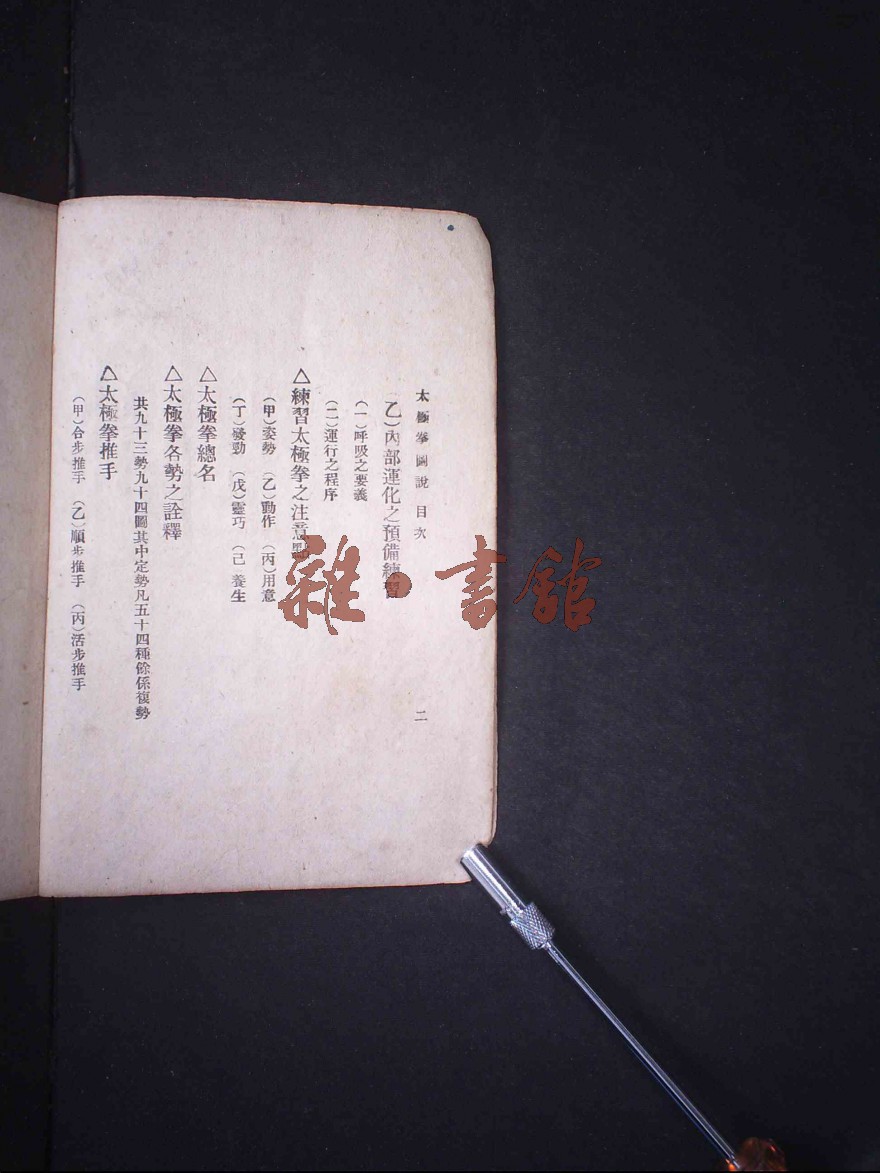 太極拳圖說 目次 二
乙）內部運化之預備練習
（一）呼吸之要義
（二）運行之程序
△練習太極拳之注意點
（甲）姿勢 （乙）動作 （丙）用意
（丁）發勁 （戊）靈巧 （己）養生
△太極拳總名
△太極拳各勢之詮釋
共九十三勢九十四圖其中定勢凡五十四種餘係複勢
△太極拳推手
（甲）合步推手 （乙）順步推手 （丙）活步推手
雜·書館